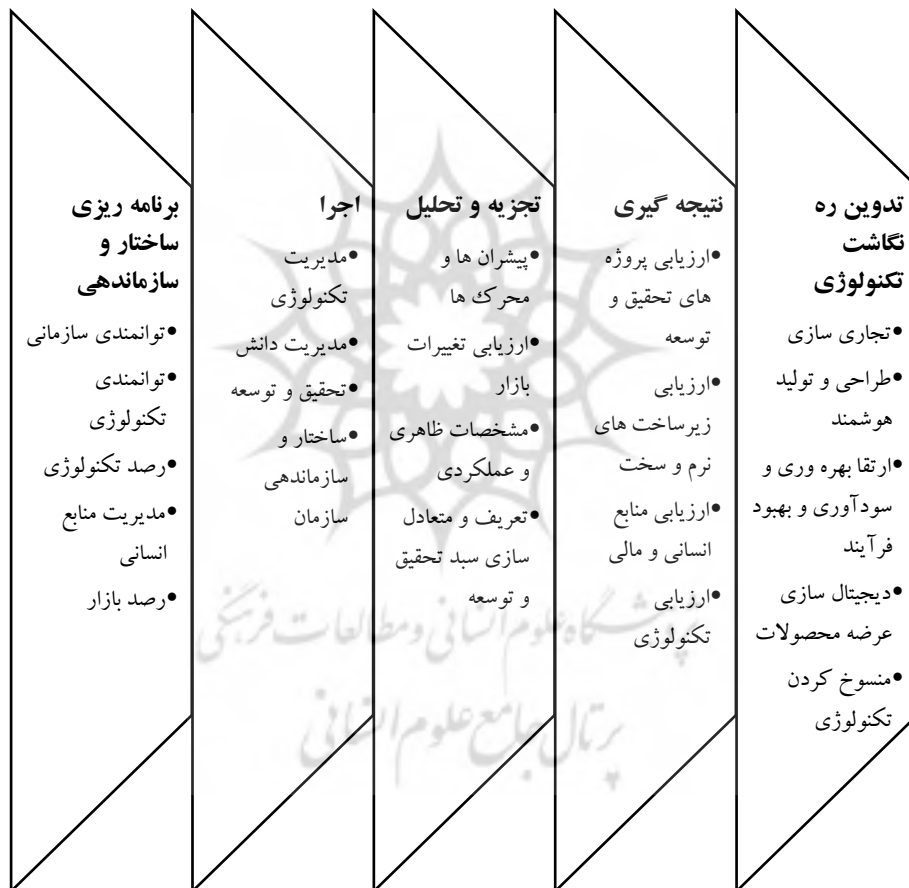 تدوین ره
نگاشت
تکنولوژی
•تجاری سازی
•طراحی و تولید
هوشمند
•ارتقا بهره وری و
سودآوری و بهبود
فرآیند
•دیجیتال سازی
عرضه محصولات
•منسوخ کردن
تکنولوژی
نتیجه گیری
•ارزیابی پروژه
های تحقیق و
توسعه
•ارزیابی
زیرساخت های
نرم و سخت
•ارزیابی منابع
انسانی و مالی
•ارزیابی
تکنولوژی
تجزیه و تحلیل
•پیشران ها و
محرک ها
•ارزیابی تغییرات
بازار
•مشخصات ظاهری
و عملکردی
•تعریف و متعادل
سازی سبد تحقیق
و توسعه
اجرا
•مدیریت
تکنولوژی
•مدیریت دانش
•تحقیق و توسعه
•ساختار و
سازماندهی
سازمان
برنامه ریزی
ساختار و
سازماندهی
•توانمندی سازمانی
•توانمندی
تکنولوژی
•رصد تکنولوژی
•مدیریت منابع
انسانی
•رصد بازار
پژوهشگاه علوم انسانی و مطالعات فرهنگی
پرتال جامع علوم انسانی